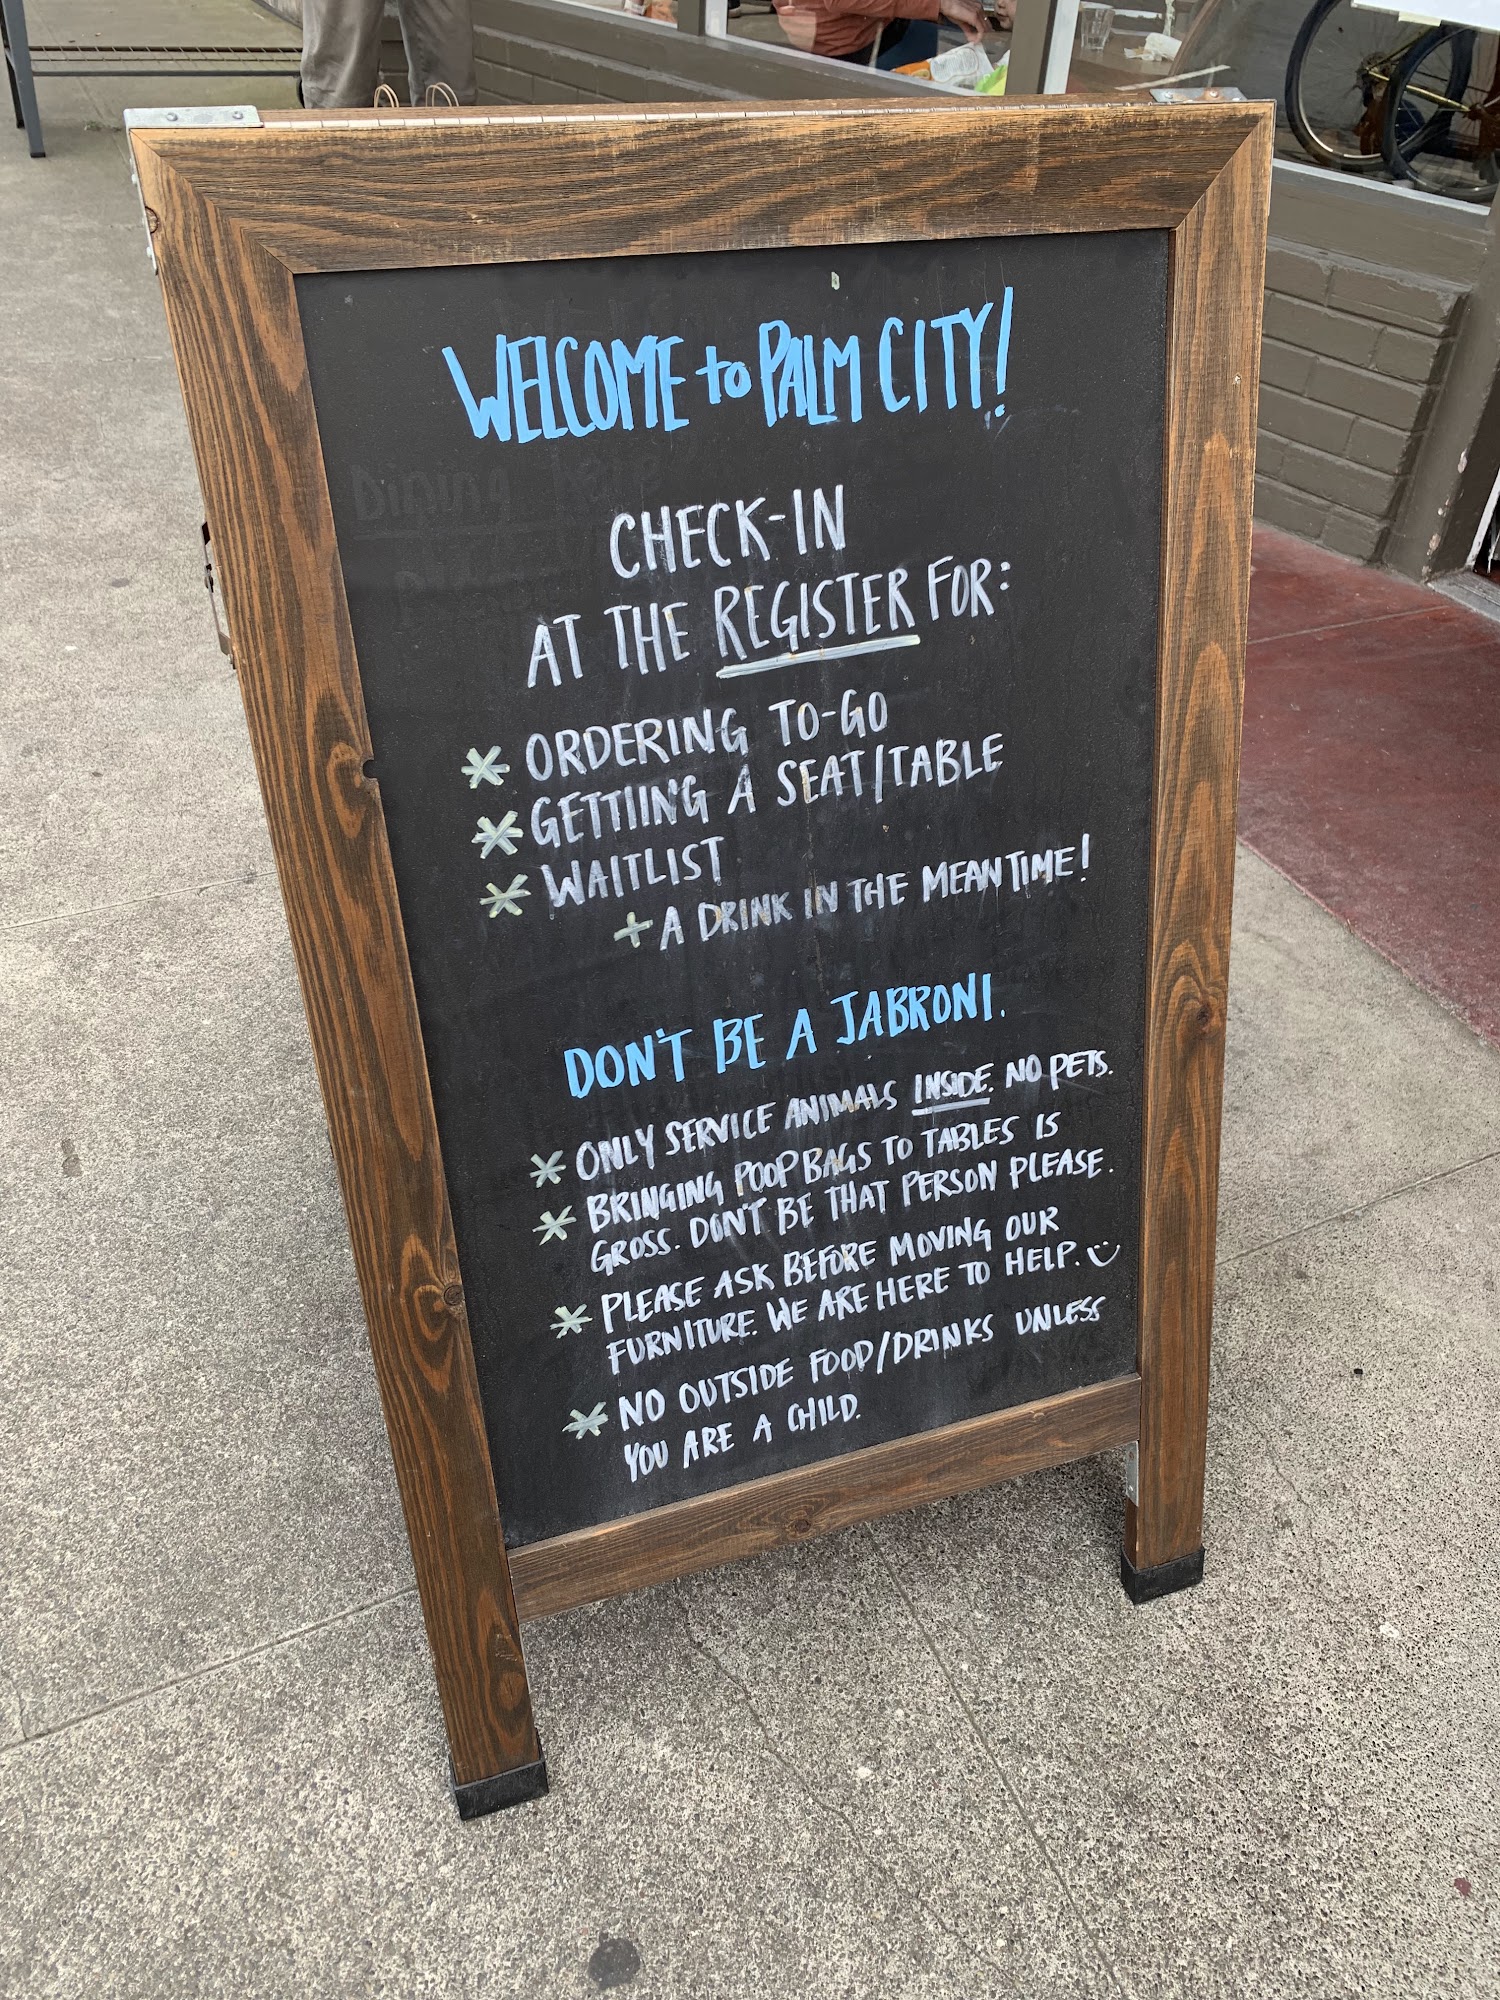 WELCOME to PALM CITY!
CHECK-IN
AT THE REGISTER FOR:
* ORDERING TO-GO
* GETTIING A SEAT/TABLE
* WAITLIST
+ A DRINK IN THE MEANTIME!
DON'T BE A JABRONI.
* ONLY SERVICE ANIMALS INSIDE. NO PETS.
* BRINGING POOP BAGS TO TABLES IS
GROSS. DON'T BE THAT PERSON PLEASE.
* PLEASE ASK BEFORE MOVING OUR
FURNITURE. WE ARE HERE TO HELP.
* NO OUTSIDE FOOD/DRINKS UNLESS
YOU ARE A CHILD.